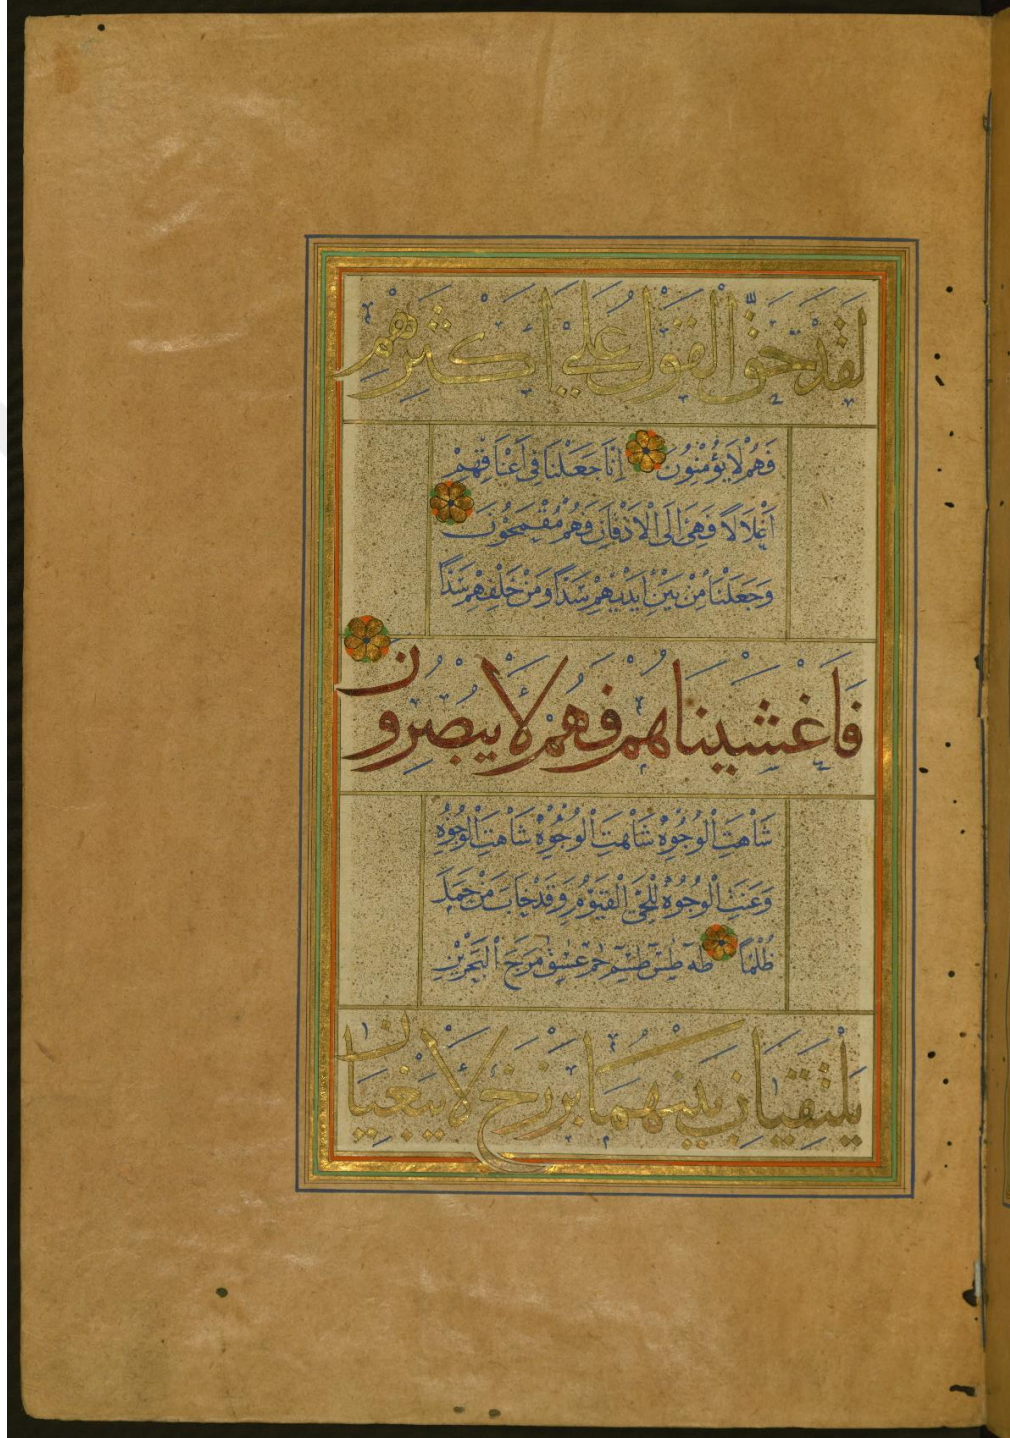 لَقَدْ حَقَّ الْقَوْلُ عَلَى أَكْثَرِهِمْ
فَهُمْ لَا يُؤْمِنُونَ إِنَّا جَعَلْنَا فِي أَعْنَاقِهِمْ
أَغْلَالًا فَهِيَ إِلَى الْأَذْقَانِ فَهُمْ مُقْمَحُونَ
وَجَعَلْنَا مِنْ بَيْنِ أَيْدِيهِمْ سَدًّا وَمِنْ خَلْفِهِمْ سَدًّا
فَأَغْشَيْنَاهُمْ فَهُمْ لَا يُبْصِرُونَ
شَاهَتِ الْوُجُوهُ شَاهَتِ الْوُجُوهُ شَاهَتِ الْوُجُوهُ
وَعَنَتِ الْوُجُوهُ لِلْحَيِّ الْقَيُّومِ وَقَدْ خَابَ مَنْ حَمَلَ
ظُلْمًا طٰهٰ طٰسٓ طٰسٓمٓ حٰمٓ عٓسٓقٓ مَرَجَ الْبَحْرَيْنِ
يَلْتَقِيَانِ بَيْنَهُمَا بَرْزَخٌ لَا يَبْغِيَانِ